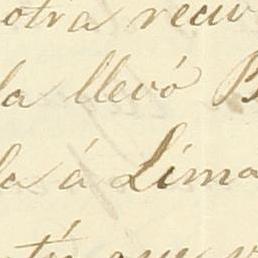 otra reciv
la llevó B
la á Lima